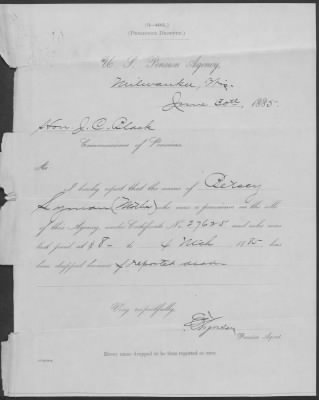 (Pensioner Dropped.)
U. S. Pension Agency,
Milwaukee, Wis.
June 30th, 1885.
Hon. J. C. Black
Commissioner of Pensions.
Sir:
I hereby report that the name of Betsey
Lyman (Mother) who was a pensioner on the rolls
of this Agency, under Certificate No. 27625 and who was
last paid at $8- to 4 Mch 1885 has
been dropped because of reported death
Very respectfully,
Pension Agent.
Every name dropped to be thus reported at once.